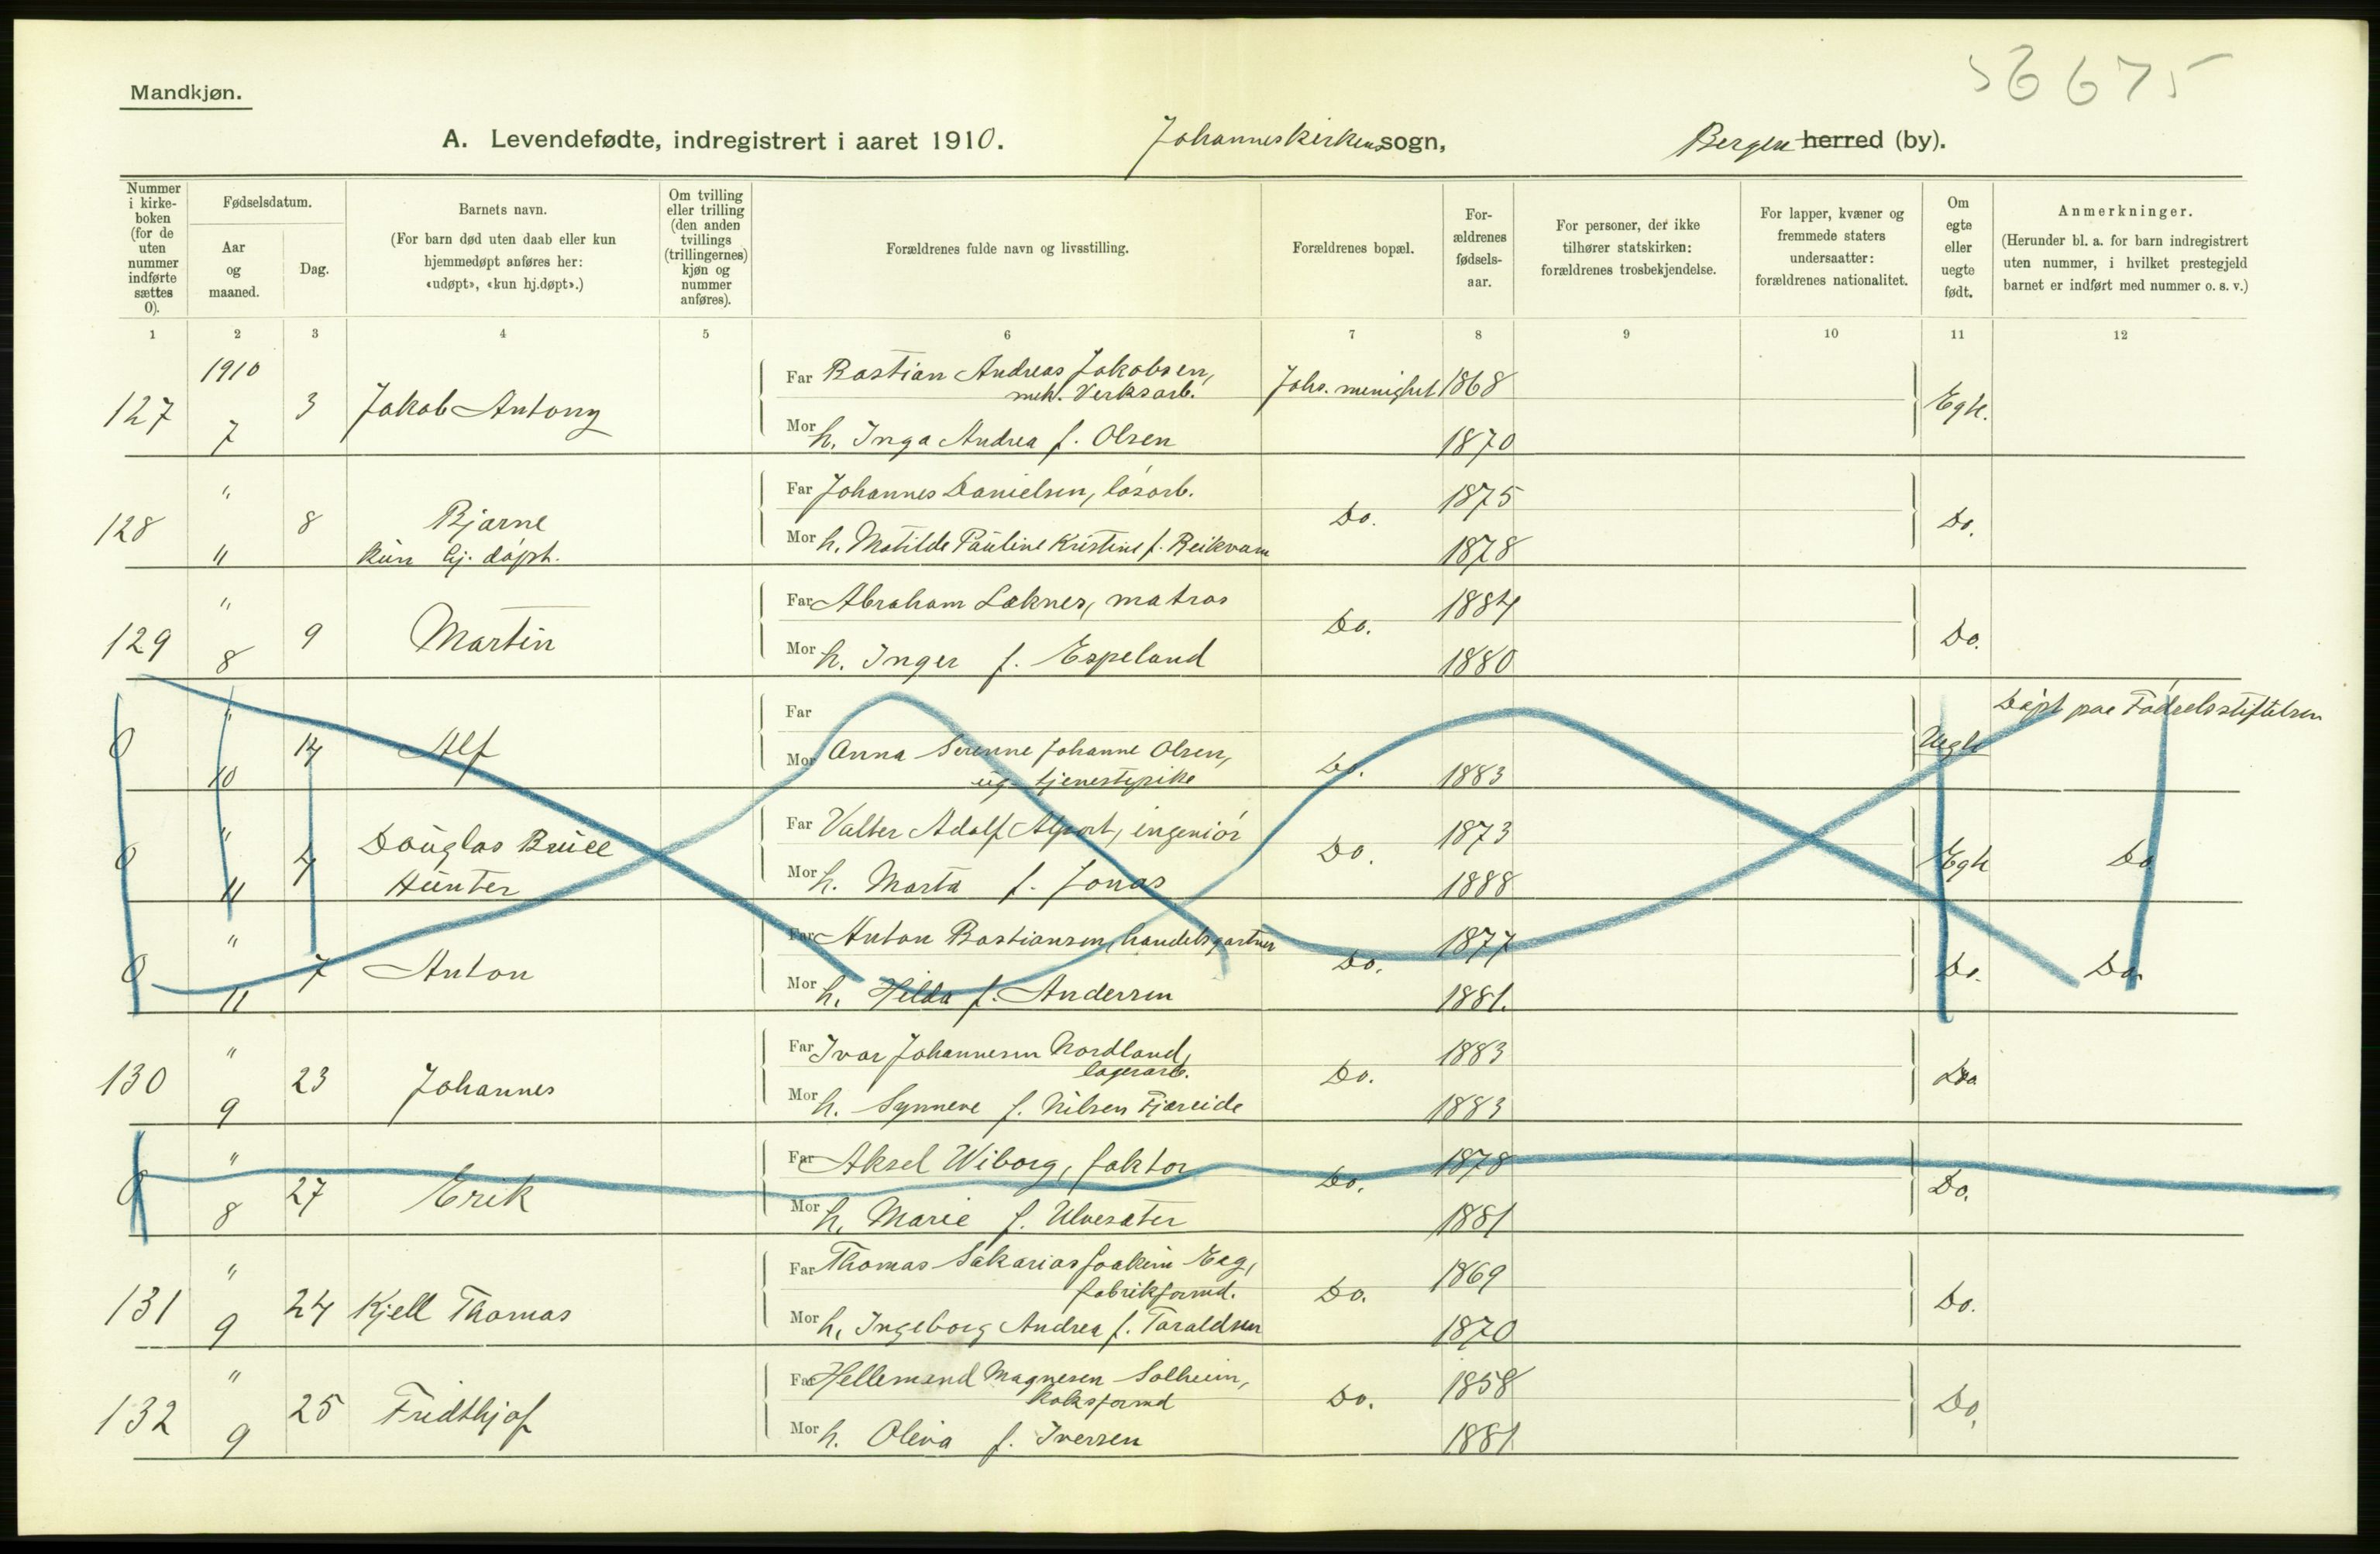 56675
Mandkjøn.
A. Levendefødte, indregistrert i aaret 1910. Johanneskirkens sogn, Bergen herred (by).
Nummer i kirkeboken (for de uten nummer indførte sættes 0).
Fødselsdatum.
Aar og maaned.
Dag.
Barnets navn.
(For barn død uten daab eller kun hjemmedøpt anføres her: «udøpt», «kun hj.døpt».)
Om tvilling eller trilling (den anden tvillings (trillingernes) kjøn og nummer anføres).
Forældrenes fulde navn og livsstilling.
Forældrenes bopæl.
Forældrenes fødselsaar.
For personer, der ikke tilhører statskirken: forældrenes trosbekjendelse.
For lapper, kvæner og fremmede staters undersaatter: forældrenes nationalitet.
Om egte eller uegte født.
Anmerkninger.
(Herunder bl. a. for barn indregistrert uten nummer, i hvilket prestegjeld barnet er indført med nummer o. s. v.)
1 2 3 4 5 6 7 8 9 10 11 12
127 1910 7 3 Jakob Antony
Far Bastian Andreas Jakobsen, mek. Verksarb. Johs. menighet 1868 Egte.
Mor h. Inga Andrea f. Olsen 1870
128 " " 8 Bjarne
kun hj. døpt.
Far Johannes Danielsen, løsarb. Do. 1875 Do.
Mor h. Matilde Pauline Kristine f. Reikvam 1878
129 " 8 9 Martin
Far Abraham Løknes, matros Do. 1884 Do.
Mor h. Inger f. Espeland 1880
0 " 10 14 Alf
Far
Mor Anna Serenne Johanne Olsen, ug. tjenestepike Do. 1883 Uegte Døpt paa Fødselsstiftelsen
0 " 11 4 Douglas Bruce Hunter
Far Valter Adolf Alport, ingeniør Do. 1873 Egte Do
Mor h. Marta f. Jonas 1888
0 " 11 7 Anton
Far Anton Bastiansen, handelsgartner Do. 1877 Do. Do.
Mor h. Hilda f. Andersen 1881.
130 " 9 23 Johannes
Far Ivar Johannesen Nordland, lagerarb. Do. 1883 Do
Mor h. Synneve f. Nilsen Fjæreide 1883
0 " 8 27 Erik
Far Aksel Wiborg, faktor Do. 1878 Do.
Mor h. Marie f. Ulvesæter 1881
131 " 9 24 Kjell Thomas
Far Thomas Sakarias Joakim Eeg, fabrikformd. Do. 1869 Do.
Mor h. Ingeborg Andrea f. Taraldsen 1870
132 " 9 25 Fridthjof
Far Hellemand Magnesen Solheim, koksformd Do. 1858 Do.
Mor h. Oliva f. Iversen 1881